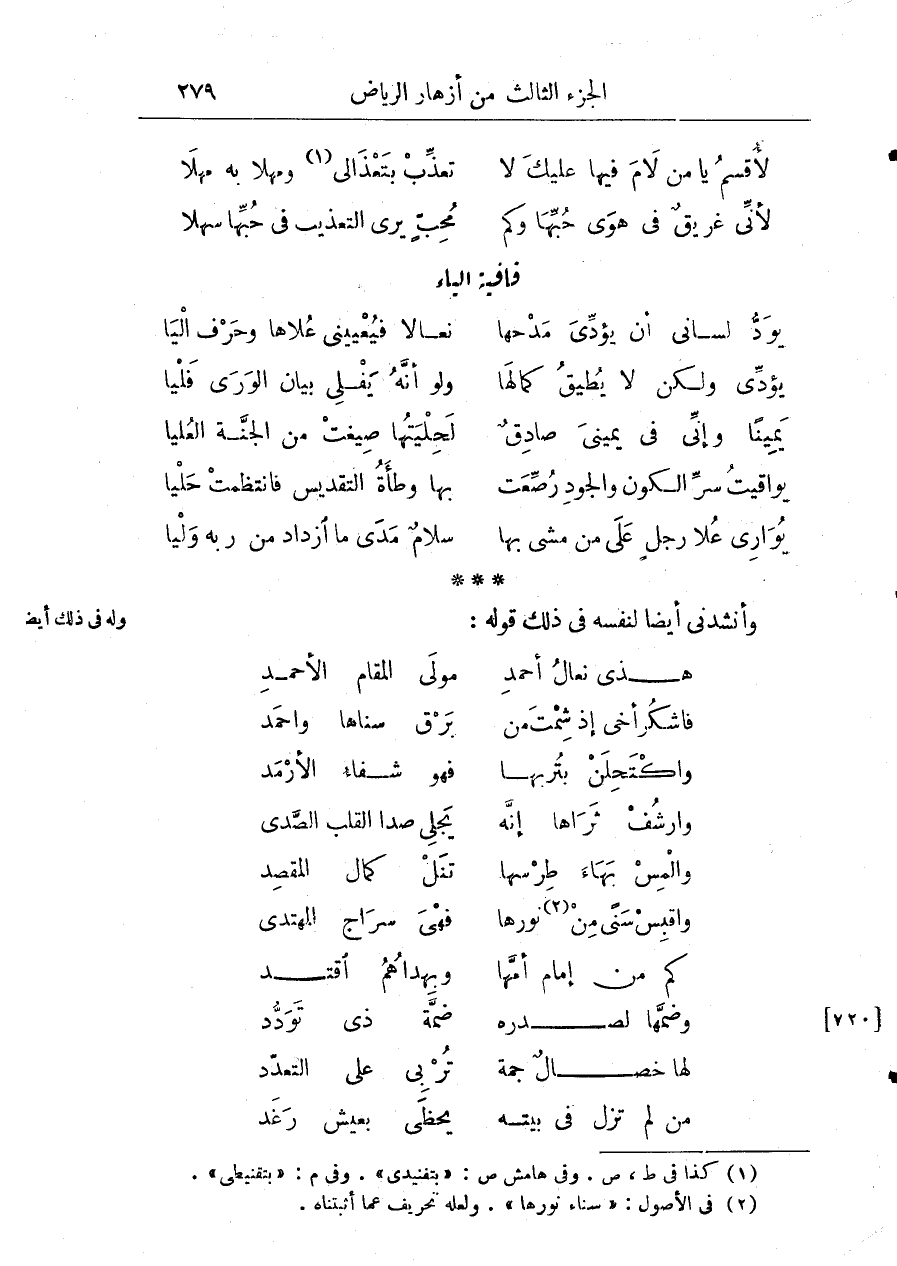 الجزء الثالث من أزهار الرياض ٢٧٩
لأُقسمُ يا من لَامَ فيها عليكَ لا تعذِّبْ بتَعْذَالى(١) ومهلا به مهلَا
لأنِّى غريقٌ فى هوَى حُبِّهَا وكم مُحِبٍّ يرى التعذيب فى حُبِّها سهلا
قافية الياء
يوَدُّ لسانى أن يؤدِّىَ مَدْحها نعالا فيُعْيِينى عُلاها وحَرْف الْيَا
يؤدِّى ولكن لا يُطيقُ كمالهَا ولو أنَّهُ يَفْلِى بيان الوَرَى فَلْيا
يَمِينًا وإنِّى فى يمينىَ صادِقٌ لَحِلْيَتُها صِيغتْ من الجنَّة العُليا
يواقيتُ سرِّ الكون والجودِ رُصِّعَت بها وطأَةُ التقديس فانتظمتْ حَلْيا
يُوَارِى عُلا رجلٍ عَلَى من مشى بها سلامٌ مَدَى ما ازداد من ربه وَلْيا
***
وأنشدنى أيضا لنفسه فى ذلك قوله :
وله فى ذلك أيض
هذى نعالُ أحمدِ مولَى المقام الأحمدِ
فاشكُر أخى إذ شِمْتَ من بَرْق سناها واحمَد
واكْتَحِلَنْ بتُربها فهو شفاء الأرْمَد
وارشُفْ ثَرَاها إنَّه يَجلِى صدا القلب الصَّدى
والْمِسْ بَهَاءَ طِرْسها تنَلْ كمال المقصِد
واقبِسْ سَنًى مِنْ(٢) نورها فهْىَ سرَاج المهتدى
كم من إمام أمَّها وبهداهُمُ اقتد
وضمَّها لصدره ضمَّة ذى تَوَدُّد
[٧٢٠]
لها خصالٌ جمة تُرْبِى على التعدّد
من لم تزل فى بيته يحظَى بعيش رَغَد
(١) كذا فى ط ، ص . وفى هامش ص : «بتفنيدى» . وفى م : «بتقنيطى» .
(٢) فى الأصول : «سناء نورها» . ولعله تحريف عما أثبتناه .